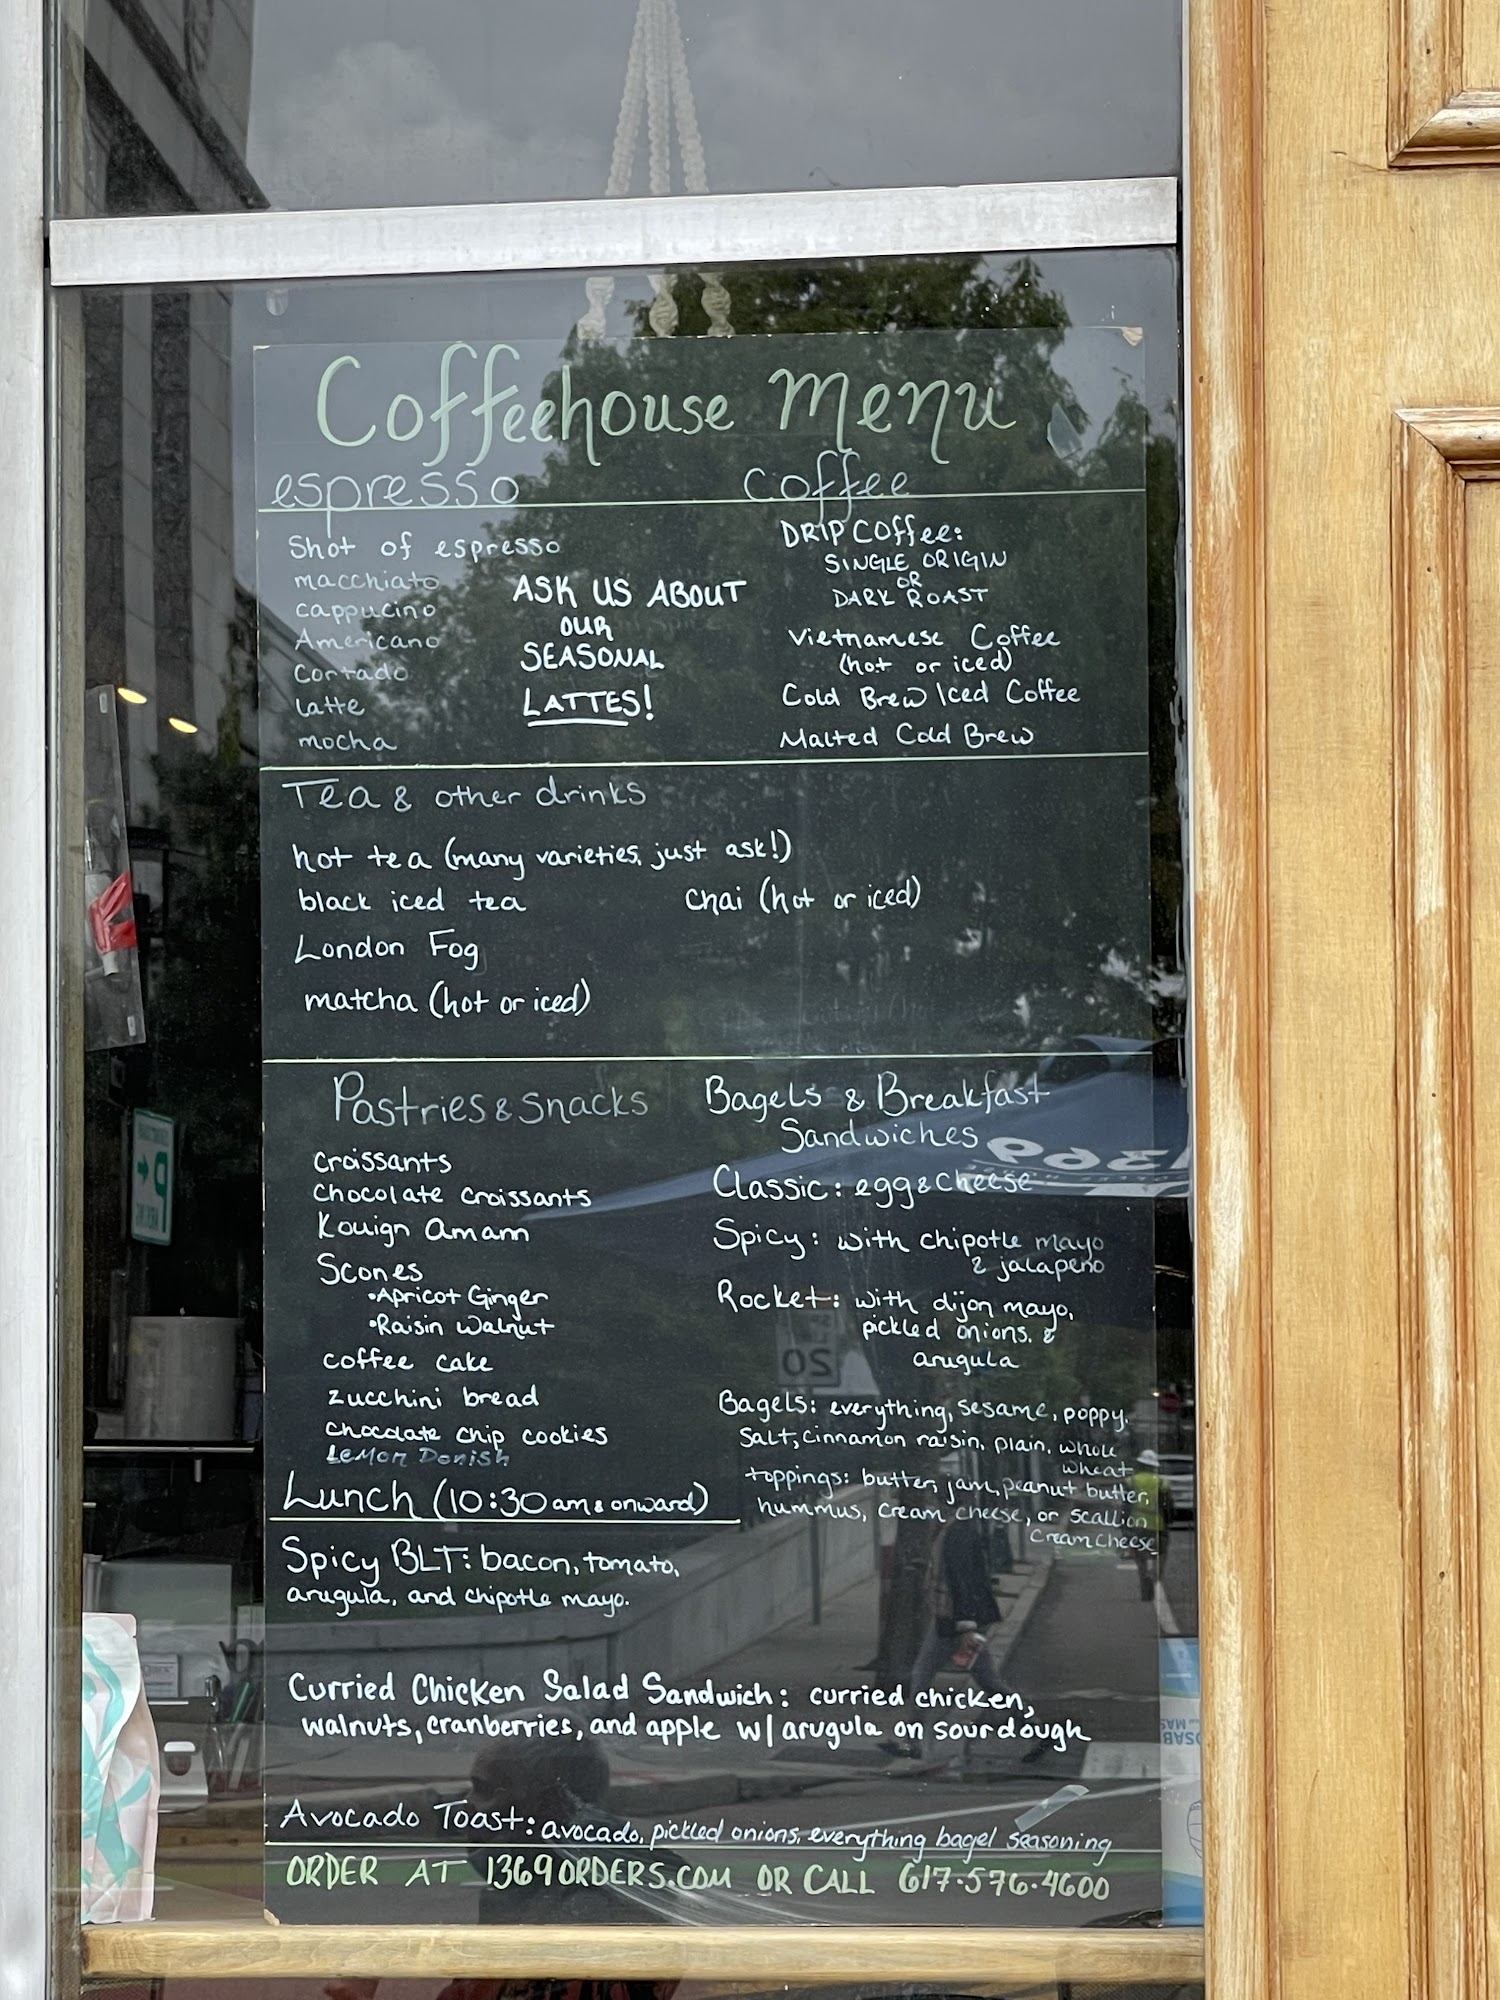 Coffeehouse Menu
espresso
Shot of espresso
macchiato
cappucino
Americano
Cortado
latte
mocha
ASK US ABOUT
OUR
SEASONAL
LATTES!
coffee
DRIP Coffee:
SINGLE ORIGIN
OR
DARK ROAST
Vietnamese Coffee
(hot or iced)
Cold Brew Iced Coffee
Malted Cold Brew
Tea & other drinks
hot tea (many varieties, just ask!)
black iced tea
chai (hot or iced)
London Fog
matcha (hot or iced)
Pastries & snacks
Croissants
Chocolate Croissants
Kouign Amann
Scones
•Apricot Ginger
•Raisin Walnut
coffee cake
zucchini bread
chocolate chip cookies
Lemon Danish
Bagels & Breakfast
Sandwiches
Classic: egg & cheese
Spicy: with chipotle mayo
& jalapeno
Rocket: with dijon mayo,
pickled onions, &
arugula
Bagels: everything, sesame, poppy,
salt, cinnamon raisin, plain, whole
wheat
toppings: butter, jam, peanut butter,
hummus, cream cheese, or scallion
cream cheese
Lunch (10:30 am & onward)
Spicy BLT: bacon, tomato,
arugula, and chipotle mayo.
Curried Chicken Salad Sandwich: curried chicken,
walnuts, cranberries, and apple w/ arugula on sourdough
Avocado Toast: avocado, pickled onions, everything bagel seasoning
ORDER AT 1369ORDERS.COM OR CALL 617.576.4600
1369
20
P